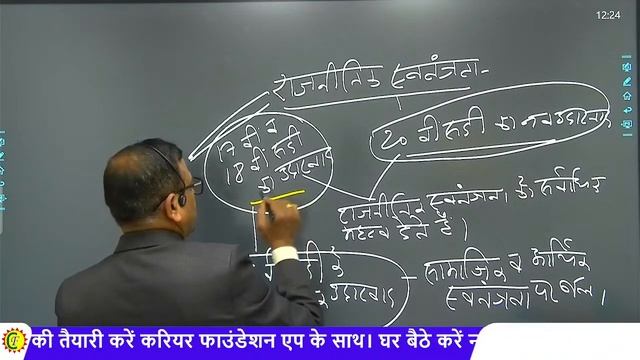 12:24
राजनीतिक स्वतंत्रता-
17 वी व
18 वी सदी
का उदारवाद
20 वी सदी का नवउदारवाद
राजनीतिक स्वतंत्रता को सर्वाधिक
महत्व देते हैं।
सदी के
उदारवाद
सामाजिक व आर्थिक
स्वतंत्रता पर बल।
की तैयारी करें करियर फाउंडेशन एप के साथ। घर बैठे करें